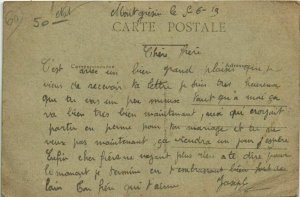 60
50
Montgrésin le 5-6-19
CARTE POSTALE
Chère frère
Correspondance
Adresse
C'est avec un bien grand plaisir que je
viens de recevoir ta lettre je suis très heureux
que tu vas un peu mieux Tant qu'à moi ça
va bien très bien maintenant, moi qui croyait
partir en perme pour ton mariage et tu de
veux pas maintenant ça viendra un jour j'espère
Enfin cher frère ne voyant plus rien a te dire pour
le moment je termine en t'embrassant bien fort de
loin Ton frère qui t'aime
Joseph